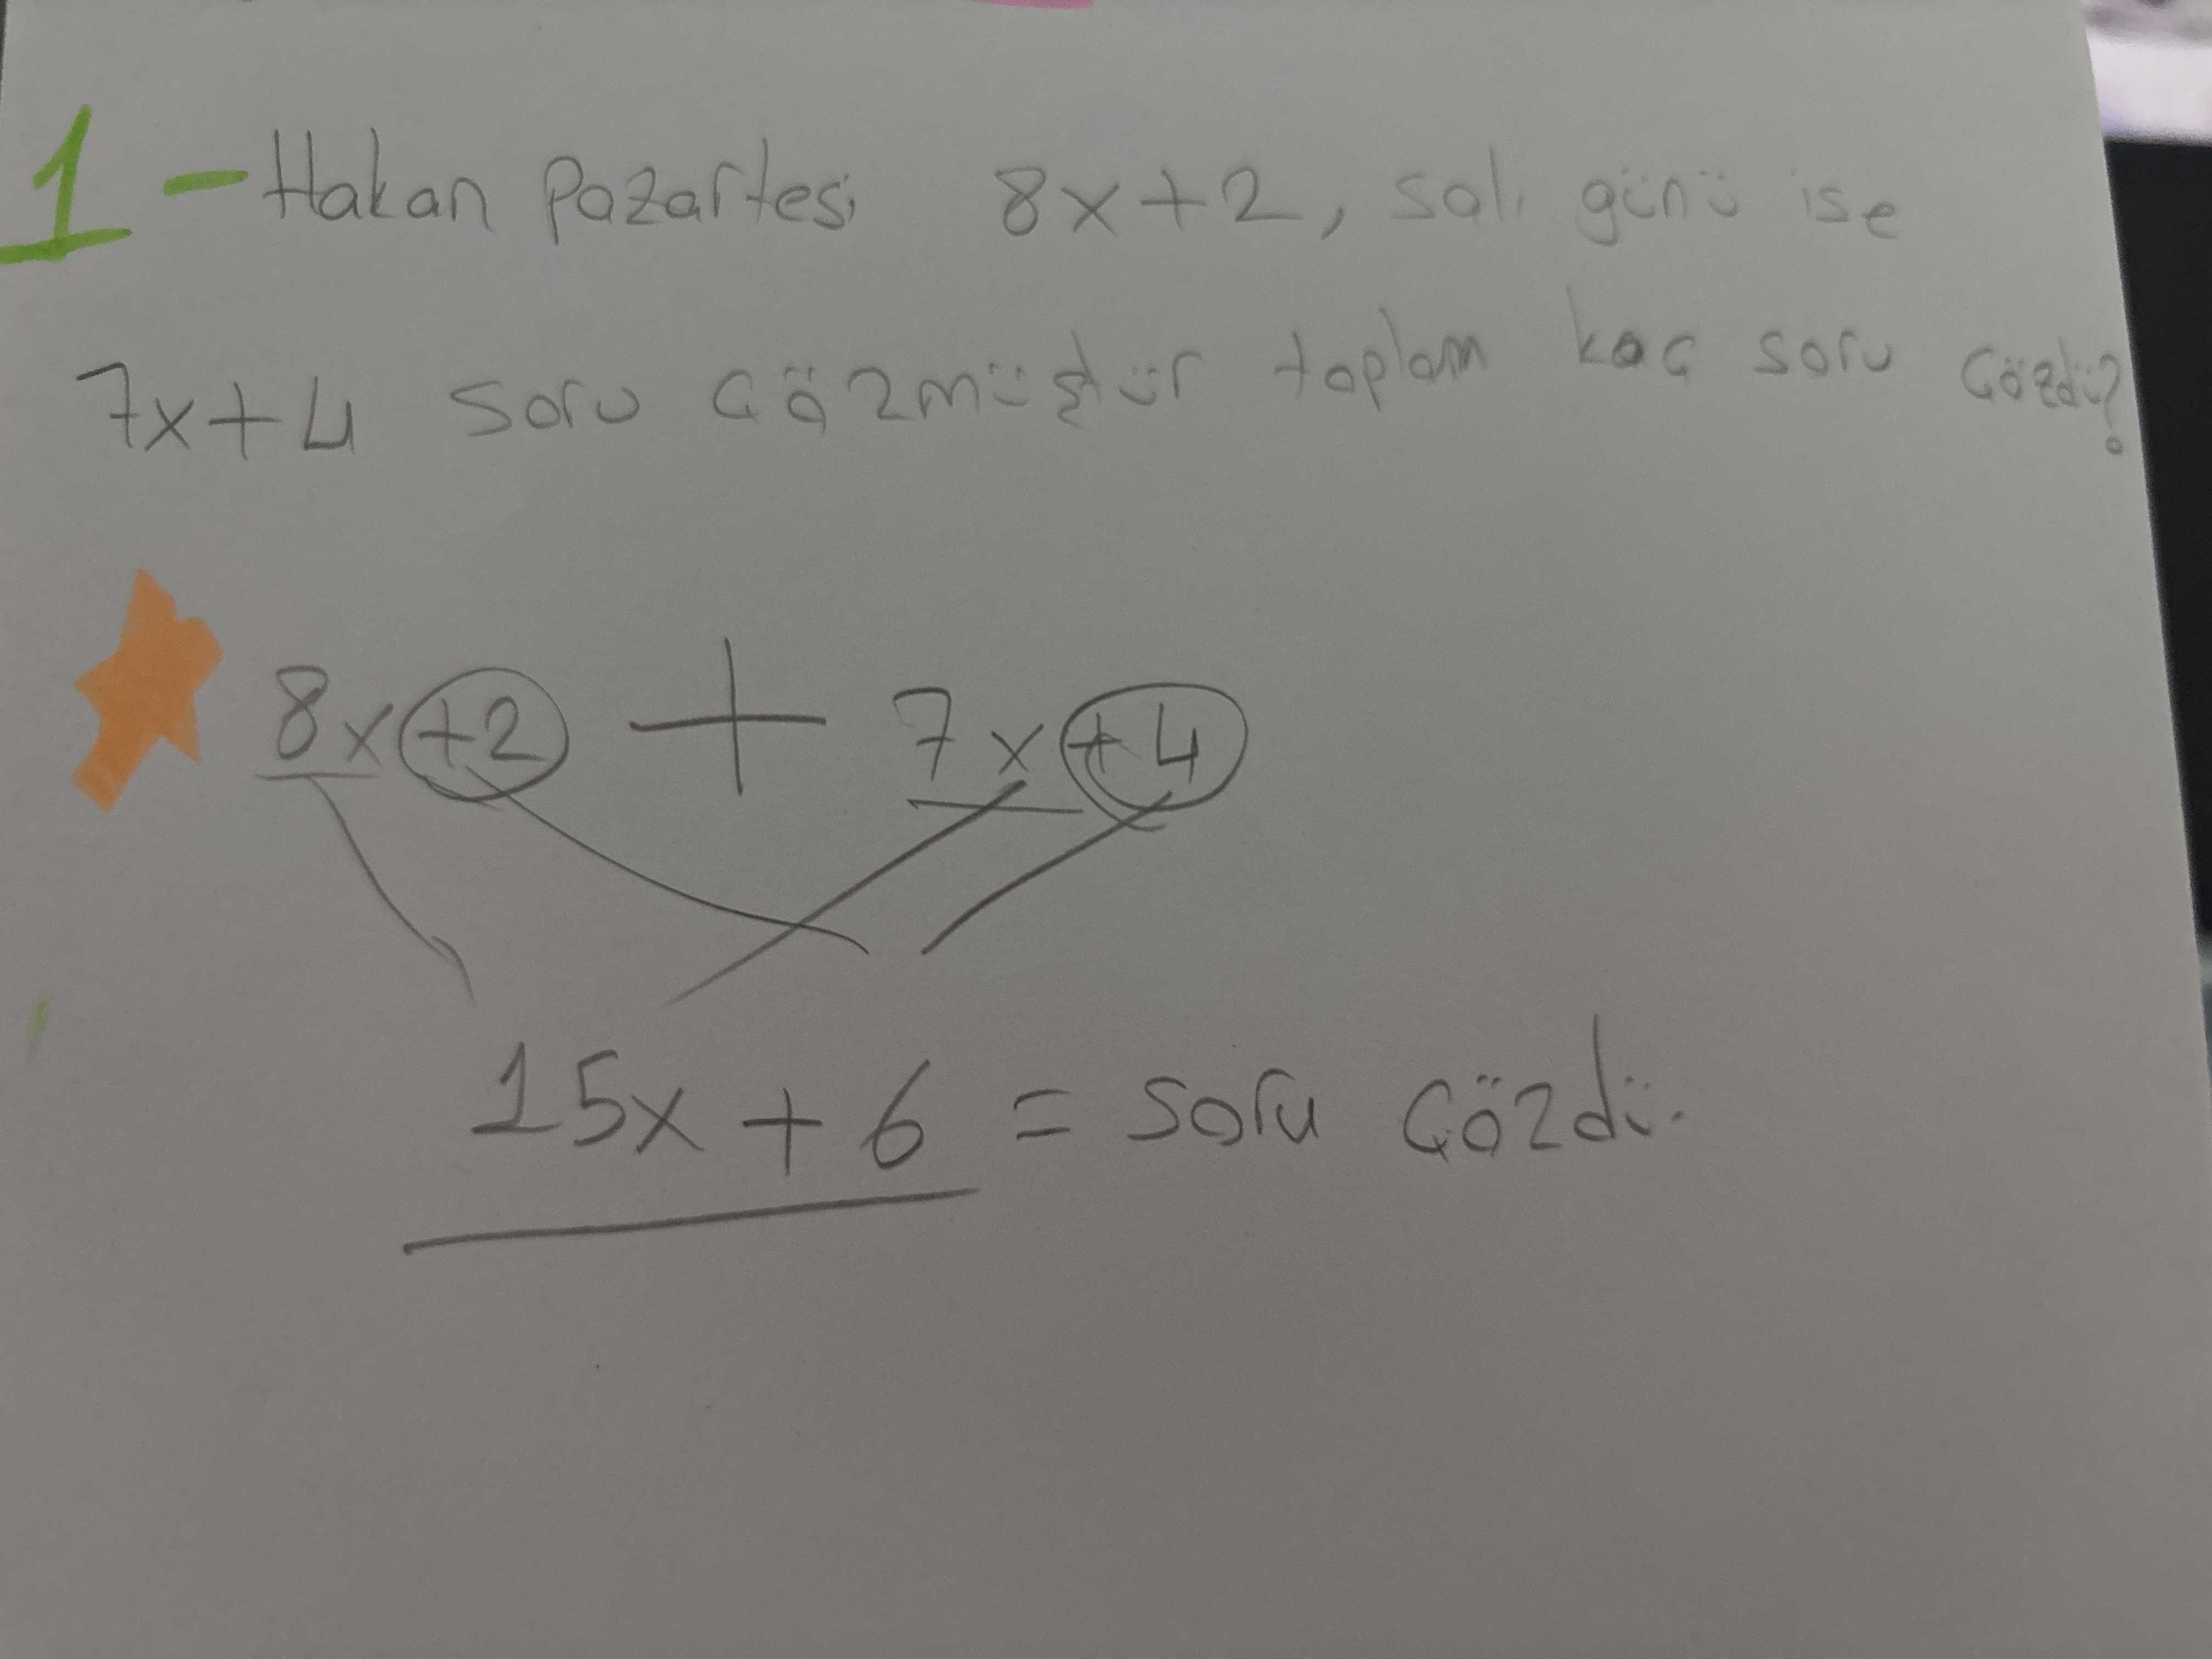 1 - Hakan pazartesi 8x+2, salı günü ise
7x+4 soru çözmüştür toplam kaç soru çözdü?
8x+2 + 7x+4
15x + 6 = soru çözdü.